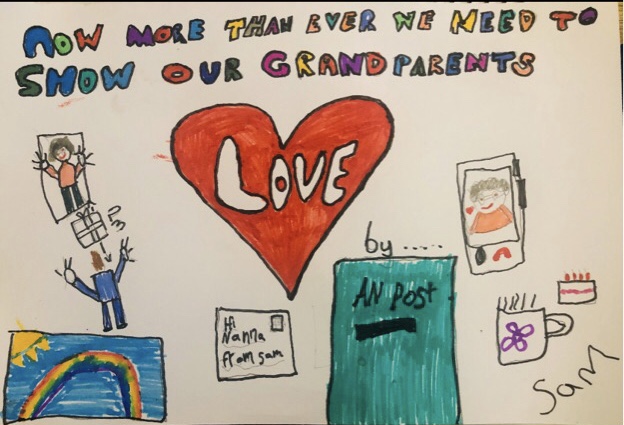 NOW MORE THAN EVER WE NEED TO
SHOW OUR GRANDPARENTS
LOVE
by .....
AN Post
Hi
Nanna
from sam
SAM